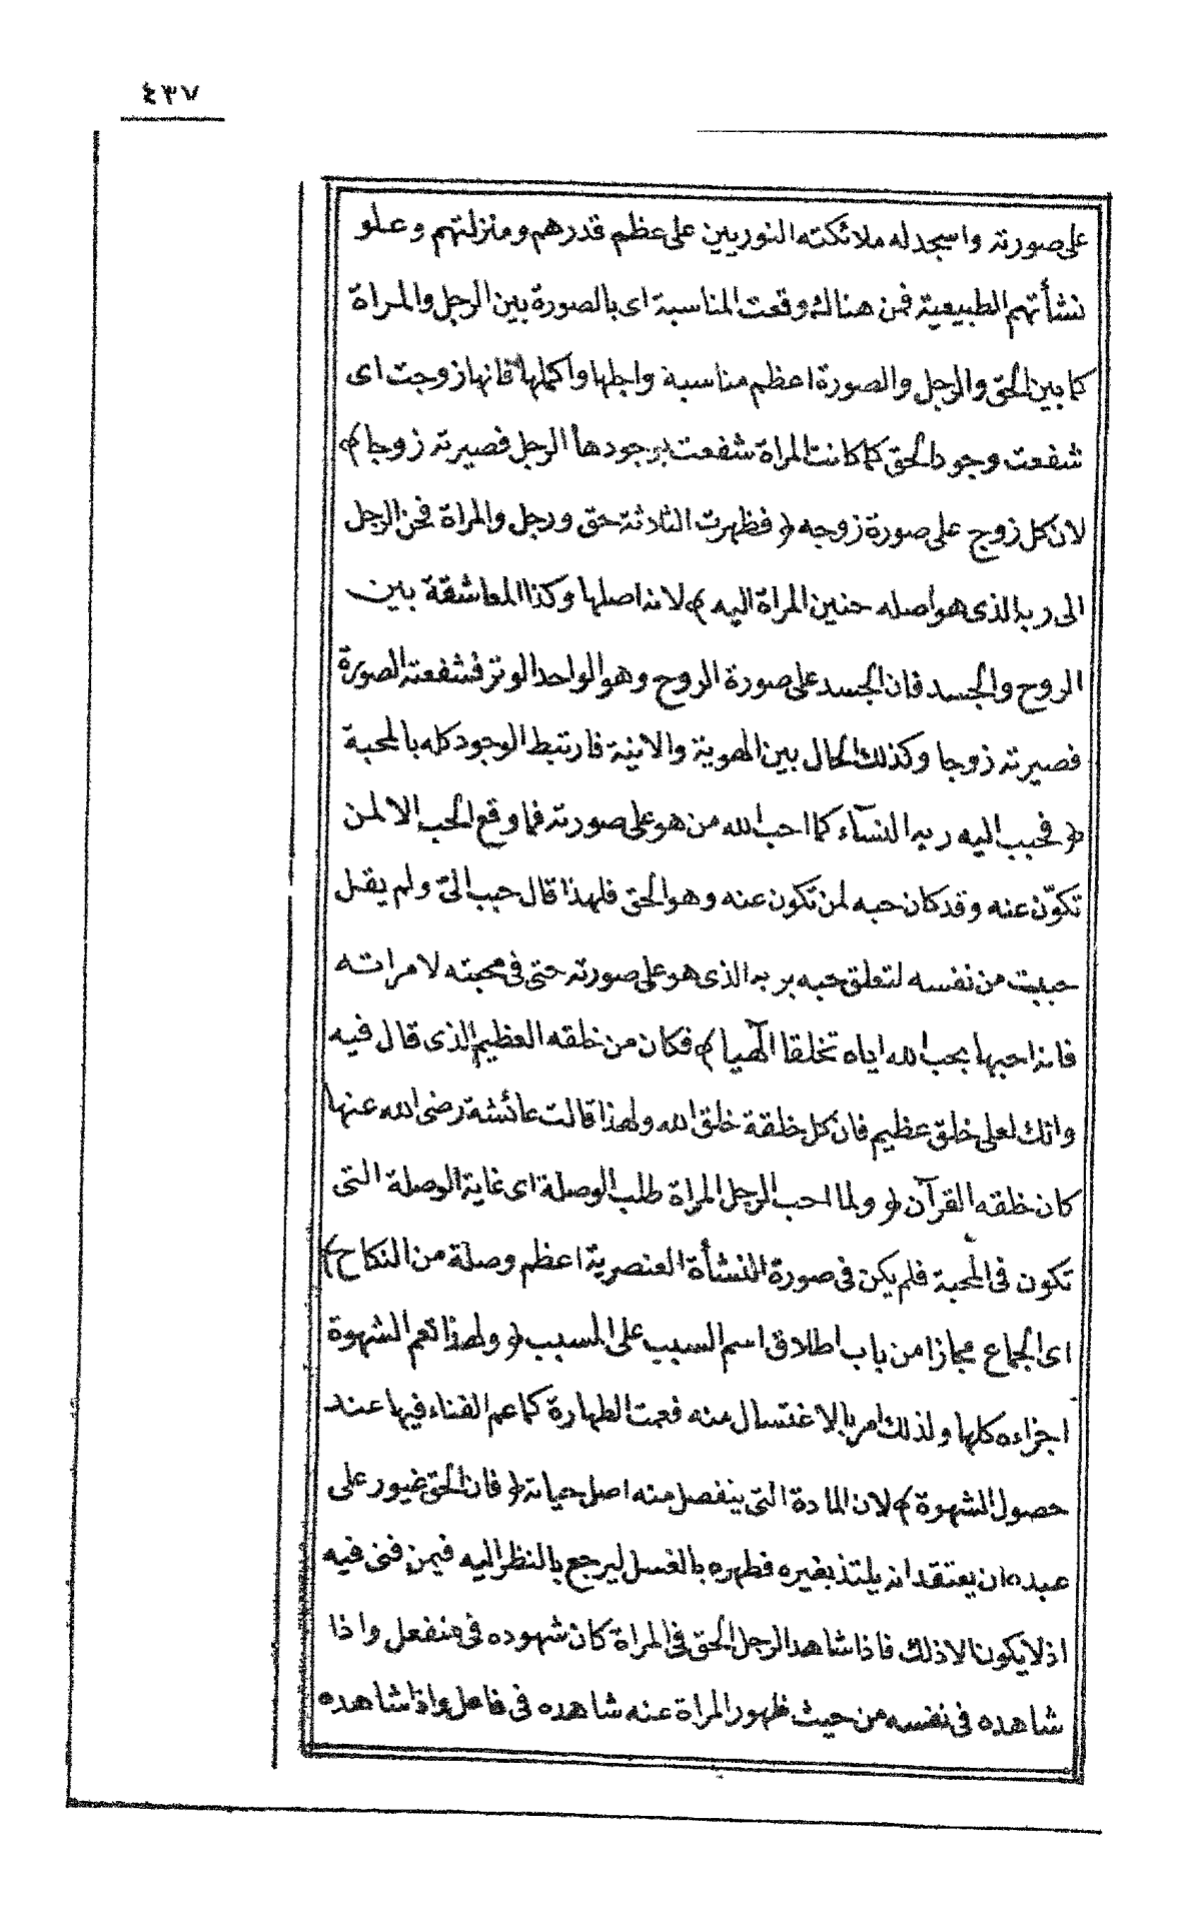 ٤٣٧
على صورته واسجد له ملائكته النوريين على عظم قدرهم ومنزلتهم وعلو
نشأتهم الطبيعية فمن هناك وقعت المناسبة اى بالصورة بين الرجل والمراة
كما بين الحق والرجل والصورة اعظم مناسبة واجلها واكملها فانها زوجت اى
شفعت وجود الحق كما كانت المراة شفعت بوجودها الرجل فصيرته زوجا﴾
لان كل زوج على صورة زوجه ﴿ فظهرت الثلاثة حق ورجل والمراة فحن الرجل
الى ربه الذى هو اصله حنين المراة اليه ﴾ لانه اصلها وكذا المعاشقة بين
الروح والجسد فان الجسد على صورة الروح وهو الواحد الوتر فشفعته الصورة
فصيرته زوجا وكذلك الحال بين الهوية والاينية فارتبط الوجود كله بالمحبة
﴿ فحبب اليه ربه النسآء كما احب الله من هو على صورته فما وقع الحب الا لمن
تكوّن عنه وقد كان حبه لمن تكون عنه وهو الحق فلهذا قال حبب الىّ ولم يقل
حببت من نفسه لتعلق حبه بربه الذى هو على صورته حتى فى محبته لامراته
فانه احبها بحب الله اياه تخلقا الٓهيا ﴾ فكان من خلقه العظيم الذى قال فيه
وانك لعلى خلق عظيم فان كل خلقة خلق الله ولهذا قالت عائشة رضى الله عنها
كان خلقه القرآن ﴿ ولما احب الرجل المراة طلب الوصلة اى غاية الوصلة التى
تكون فى المحبة فلم يكن فى صورة النشأة العنصرية اعظم وصلة من النكاح﴾
اى الجماع مجازا من باب اطلاق اسم السبب على المسبب ﴿ ولهذا تعم الشهوة
اجزاءه كلها ولذلك امر بالاغتسال منه فعمت الطهارة كما عم الفناء فيها عند
حصول الشهوة ﴾ لان المادة التى ينفصل منه اصل حياته ﴿ فان الحق غيور على
عبده ان يعتقد انه يلتذ بغيره فطهره بالغسل ليرجع بالنظر اليه فيمن فنى فيه
اذ لا يكون الا ذلك فاذا شاهد الرجل الحق فى المراة كان شهوده فى منفعل واذا
شاهده فى نفسه من حيث ظهور المراة عنه شاهده فى فاعل واذا شاهده